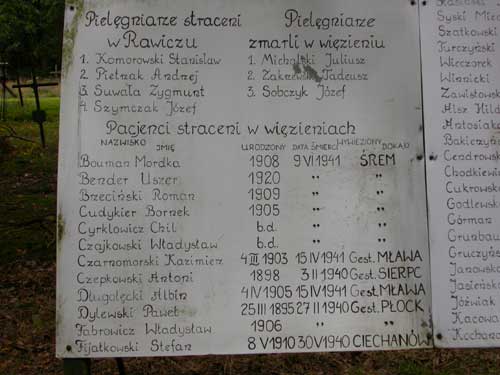 Pielęgniarze straceni
w Rawiczu
1. Komorowski Stanisław
2 Pietrzak Andrej
3 Suwała Zygmunt
4 Szymczak Józef
Pielęgniarze
zmarli w więzieniu
1. Michalski Juliusz
2. Zakrzewski Tadeusz
3. Sobczyk Józef
Pacjenci straceni w więzieniach
NAZWISKO IMIĘ URODZONY DATA ŚMIERCI WYWIEZIONY DOKĄD
Bouman Mordka 1908 9 VI 1941 ŚREM
Bender Uszer 1920 " "
Brzeciński Roman 1909 " "
Cudykier Bornek 1905 " "
Cyrklowicz Chil b.d. " "
Czajkowski Władysław b.d. " "
Czarnomorski Kazimierz 4 III 1903 15 IV 1941 Gest. MŁAWA
Czepkowski Antoni 1898 3 II 1940 Gest. SIERPC
Długołęcki Albin 4 IV 1905 15 IV 1941 Gest. MŁAWA
Dylewski Paweł 25 III 1895 27 II 1940 Gest. PŁOCK
Fabrowicz Władysław 1906 " "
Fijatkowski Stefan 8 V 1910 30 V 1940 CIECHANÓW
Syski
Szatkowski
Turczyński
Wieczorek
Winnicki
Zawistowsk
Alsz Hild
Antosiak
Bakiczyń
Cendrowsk
Chodkiewic
Cukrowsk
Godlewsk
Górman
Grunbau
Gruczyńs
Janowsk
Jasieńsk
Jóźwiak
Kacowa
Kochano